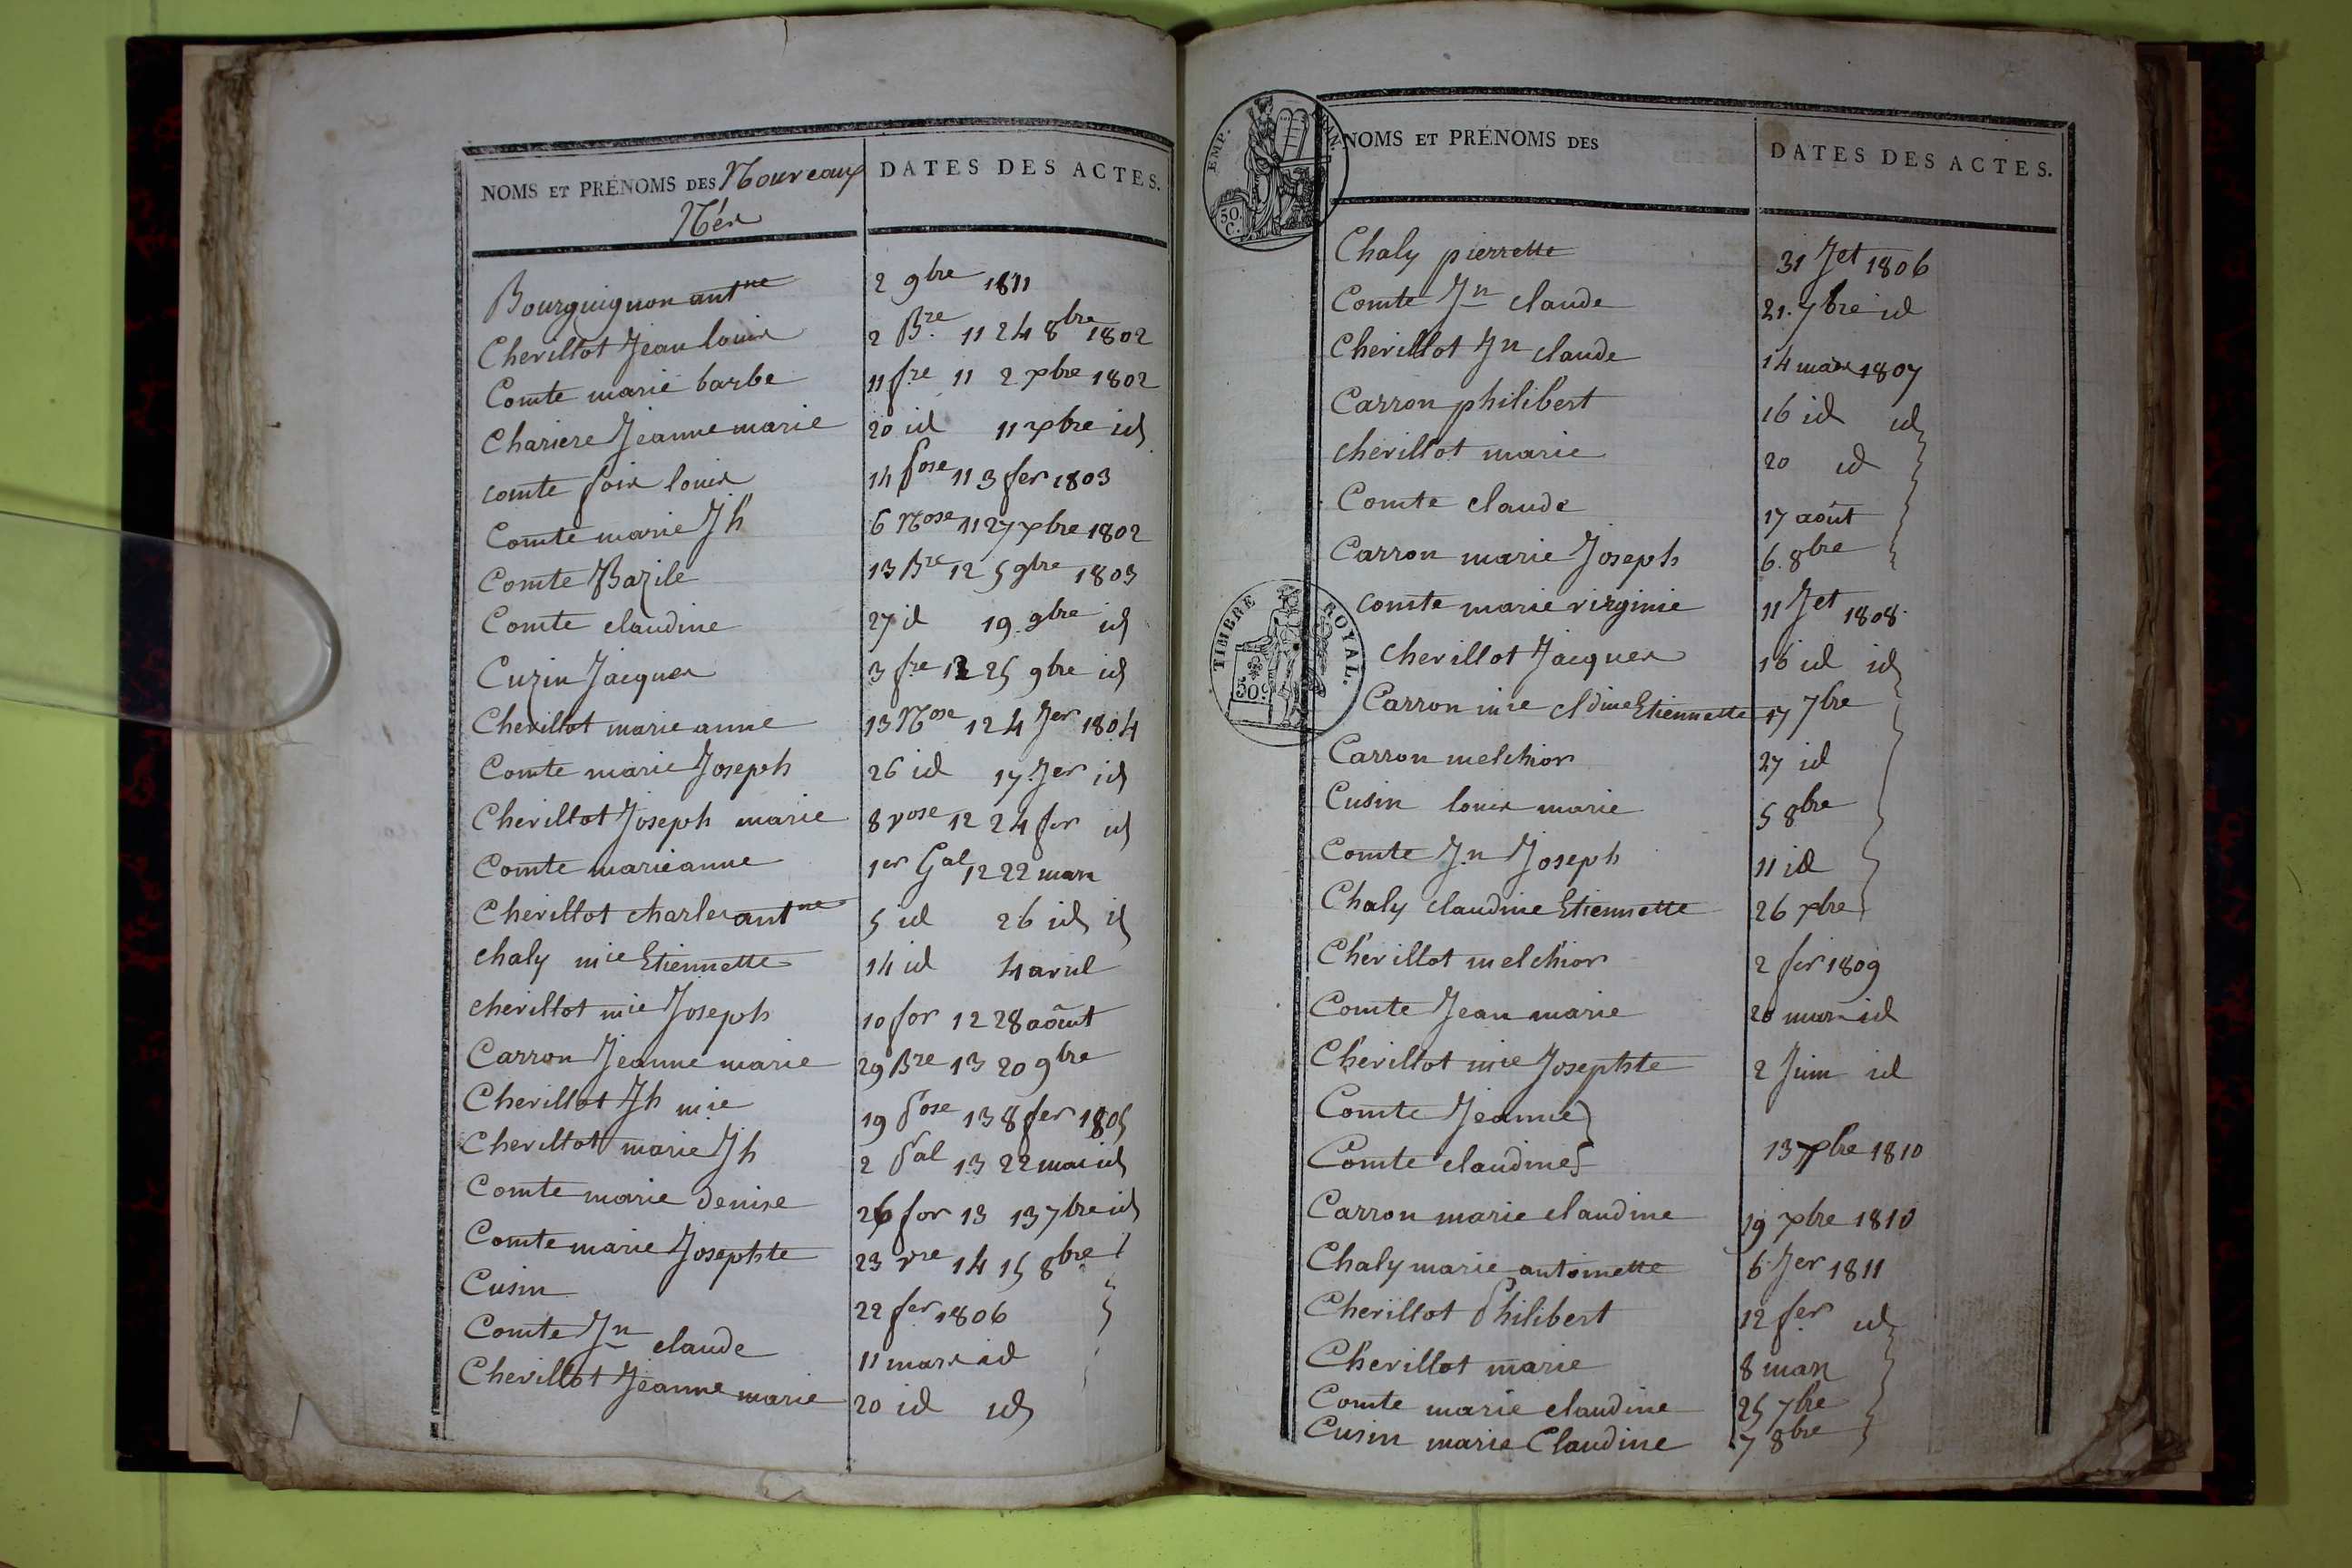 NOMS ET PRÉNOMS DES Nouveaux DATES DES ACTES.
Nés
Bourguignon antne 2 9bre 1811
Chevillot Jean louis 2 Bre 11 24 8bre 1802
Comte marie barbe 11 fre 11 2 xbre 1802
Chariere Jeanne marie 20 id 11 xbre id
comte foix louis 14 Pose 11 3 fer 1803
Comte marie Jh 6 Nose 11 27 xbre 1802
Comte Bazile 13 Bre 12 5 9bre 1803
Comte claudine 27 id 19 9bre id
Cuzin Jacques 3 fre 12 25 9bre id
Chevillot marie anne 13 Nose 12 4 Jer 1804
Comte marie Joseph 26 id 17 Jer id
Chevillot Joseph marie 8 vose 12 24 fer id
Comte marie anne 1er Gal 12 22 mars
Chevillot charles antne 5 id 26 id id
chaly mie Etiennette 14 id 4 avril
chevillot mie Joseph 10 for 12 28 août
Carron Jeanne marie 29 Bre 13 20 9bre
Chevillot Jh mie 19 Pose 13 8 fer 1805
Chevillot marie Jh 2 Pal 13 22 mai id
Comte marie denise 26 for 13 13 7bre id
Comte marie Josephte 23 vre 14 15 8bre
Cusin 22 fer 1806
Comte Jn claude 11 mars id
Chevillot Jeanne marie 20 id id
EMP. FRAN.
50. C.
NOMS ET PRÉNOMS DES DATES DES ACTES.
Chaly pierrette 31 Jet 1806
Comte Jn claude 21. 7bre id
Chevillot Jn claude 14 mars 1807
Carron philibert 16 id id
chevillot marie 20 id
Comte claude 17 août
Carron marie Joseph 6. 8bre
TIMBRE ROYAL.
50c
comte marie virginie 11 Jet 1808.
chevillot Jacques 16 id id
Carron mie cldine Etiennette 17 7bre
Carron melchior 27 id
Cusin louis marie 5 8bre
Comte Jn Joseph 11 id
Chaly claudine Etiennette 26 xbre
Chevillot melchior 2 fer 1809
Comte Jean marie 20 mars id
Chevillot mie Josephte 2 Juin id
Comte Jeanne
Comte claudine 13 xbre 1810
Carron marie claudine 19 xbre 1810
Chaly marie antoinette 6 Jer 1811
Chevillot Philibert 12 fer id
Chevillot marie 8 mars
Comte marie claudine 25 7bre
Cusin marie Claudine 7 8bre